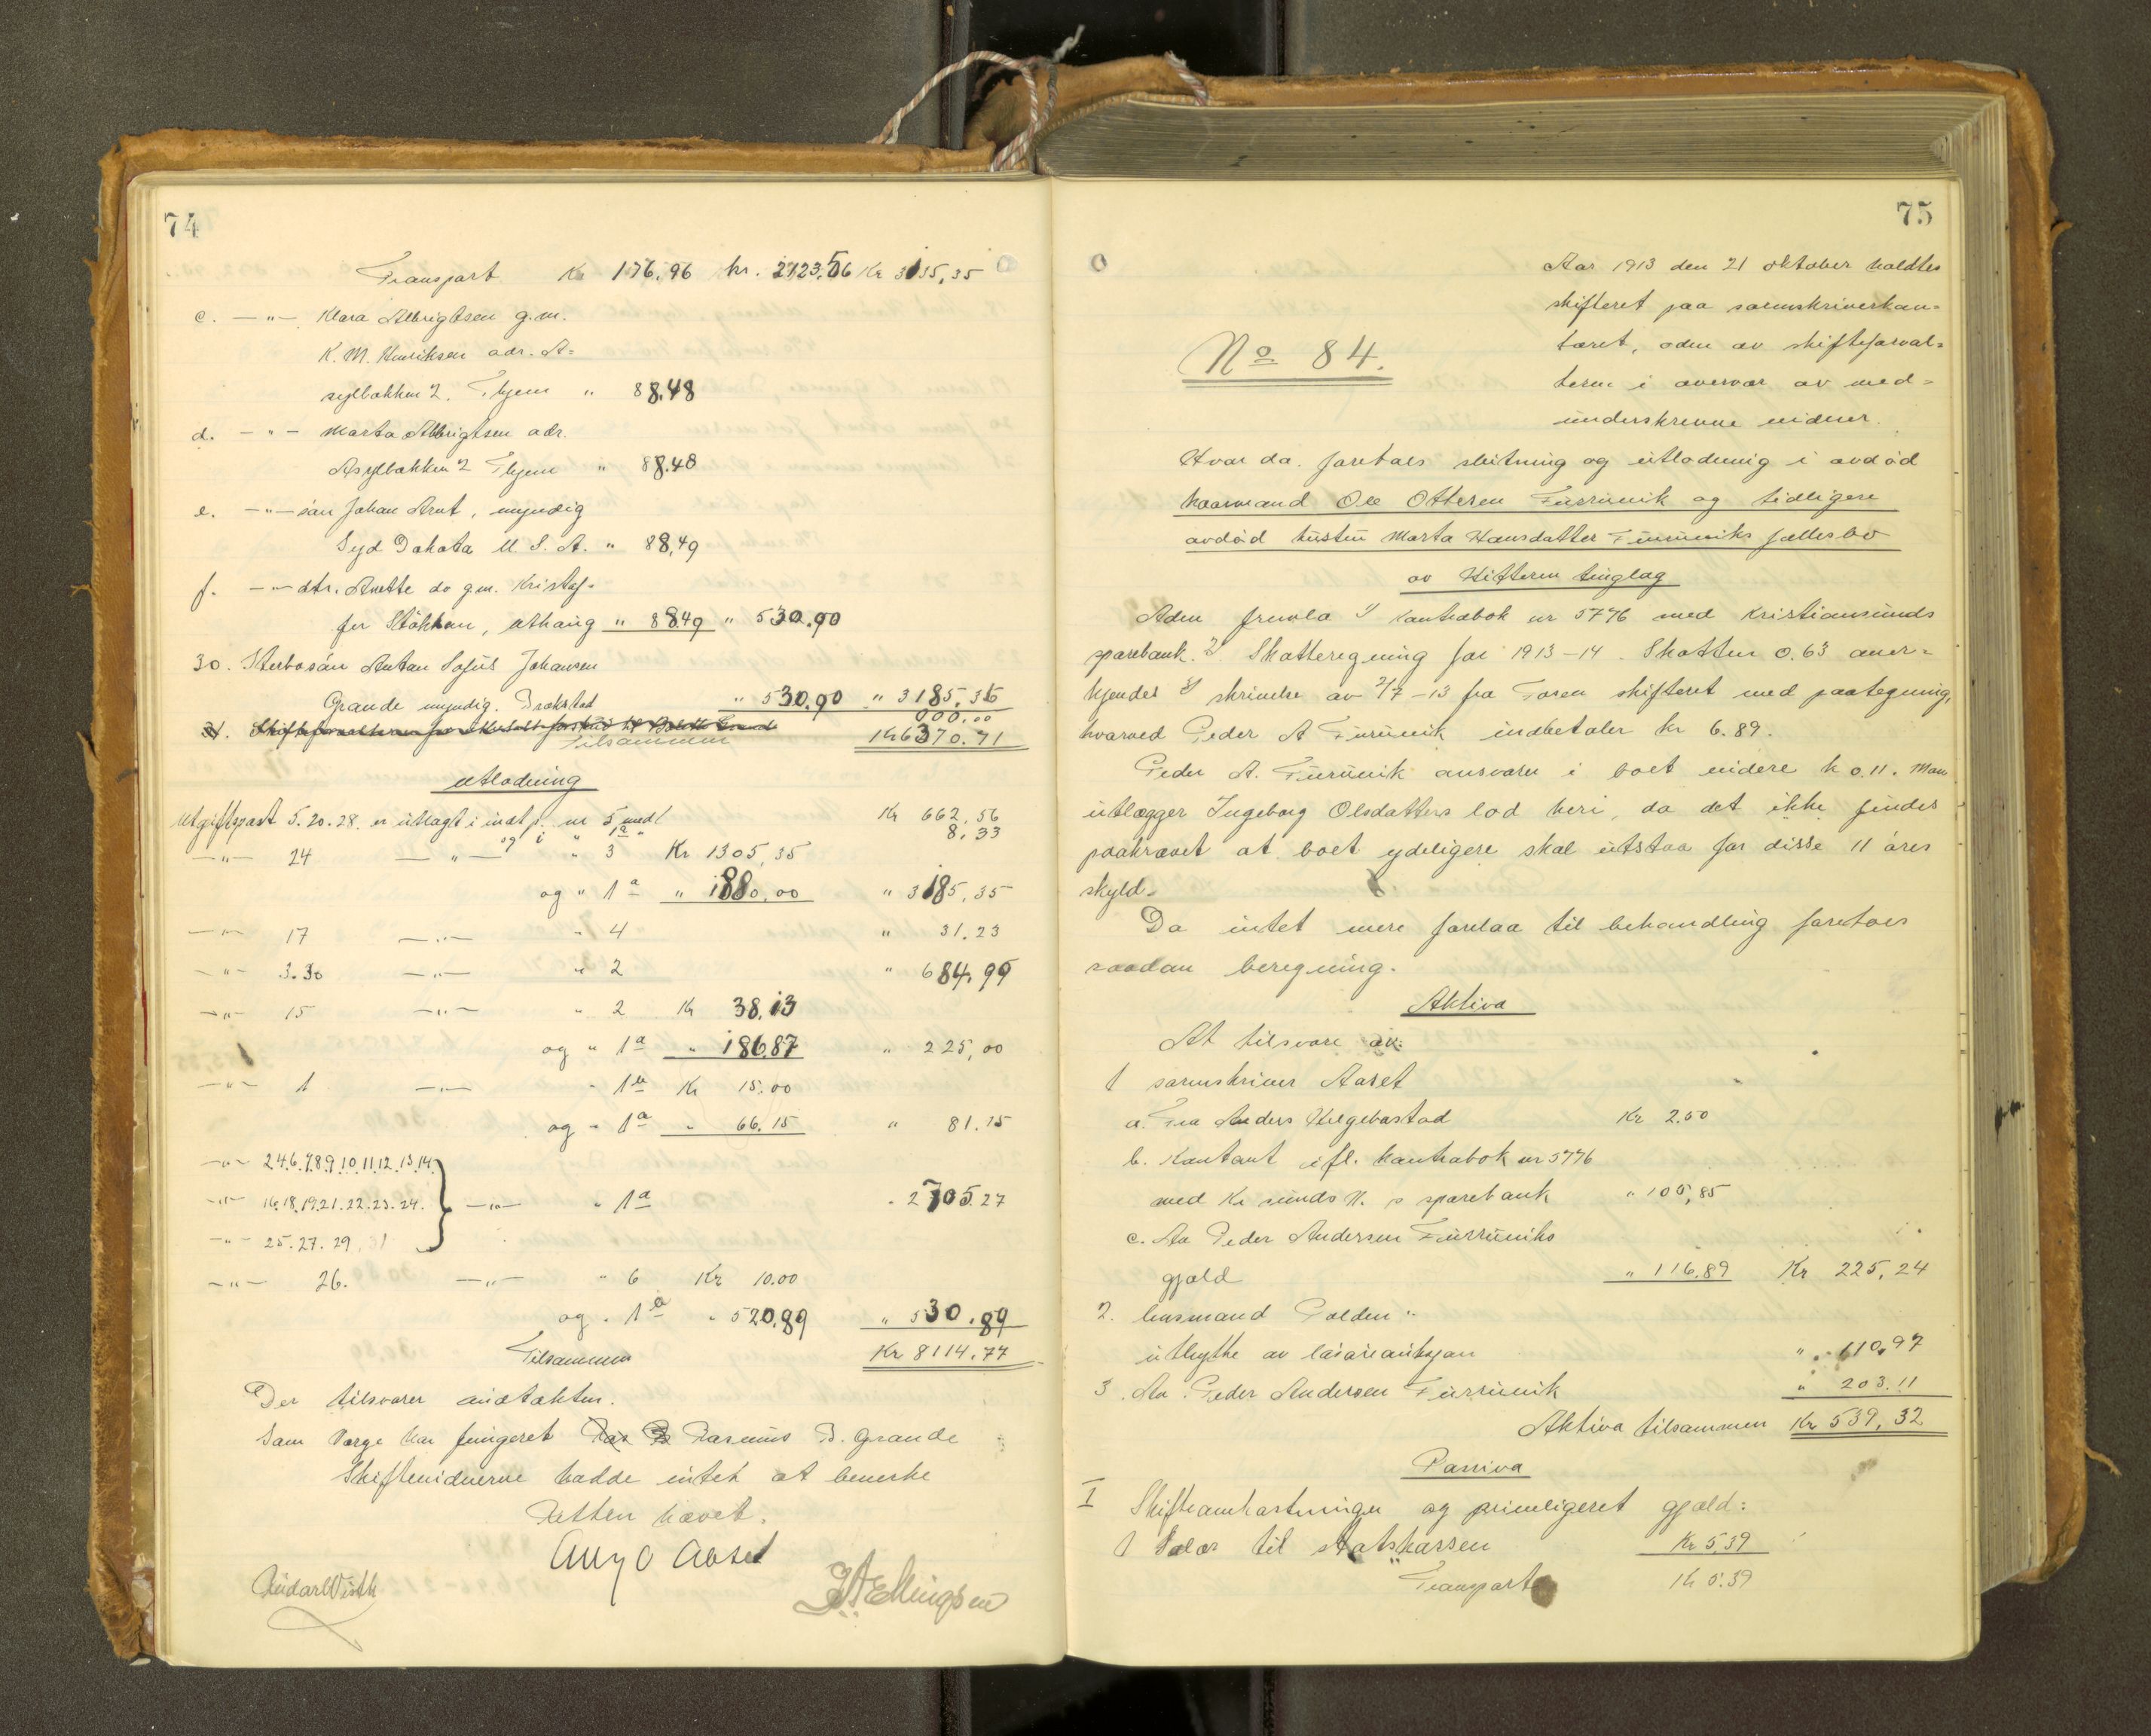 74
Transport Kr 176,96 kr. 2123,56 Kr 3135,35
c. —„— Klara Albrigtsen g.m.
K. M. Henriksen adr. A=
sylbakken 2. Thjem „ 88,48
d. —„— Marta Albrigtsen adr.
Asylbakken 2 Thjem „ 88.48
e. —„— søn Johan Arnt, myndig
Syd Dakota U. S. A. „ 88,49
f. —„— dtr. Anette do g.m. Kristof-
fer Støkkan, Athaug „ 88.49 „ 530.90
30. Sterbosøn Anton Sofus Johansen
Grande myndig. Brekstad „ 530.90 „ 3185,36
000,00
Tilsammen Kr 6370.71
Utlodning
Utgiftspost 5. 20. 28. er utlagt i indt p. nr 5 med Kr 662,56
og i „ 1a „ 8,33
—„— 24 —„— „ 3 Kr 1305,35
og „ 1a „ 1880,00 „ 3185,35
—„— 17 —„— „ 4 „ 31.23
—„— 3.30 —„— „ 2 „ 684,99
—„— 15 —„— „ 2 Kr 38.13
og „ 1a „ 186.87 „ 225,00
—„— 1 —„— „ 1b Kr 15.00
og „ 1a „ 66.15 „ 81.15
—„— 2.4.6.7.8.9.10.11.12.13.14.
—„— 16.18.19.21.22.23.24. —„— „ 1a „ 2705.27
—„— 25.27.29.31
—„— 26. —„— „ 6 Kr 10.00
og „ 1a „ 520,89 „ 530.89
Tilsammen Kr 8114.77
Der tilsvarer indtækten.
Som Værge har fungeret Rasmus B. Grande
Skiftevidnerne hadde intet at bemerke
Retten hævet.
Aug O Aaset
Reidar Wisth
J A Ellingsen
75
Aar 1913 den 21 oktober holdtes
skifteret paa sorenskriverkon=
toret, oden av skifteforval=
teren i overvær av med=
underskrevne vidner.
No 84.
Hvor da foretoes slutning og utlodning i avdød
kaarmand Ole Ottersen Furruvik og tidligere
avdød hustru Marta Hansdatter Furruviks fællesbo
av Hitteren tinglag
Aden fremla 1/ kontrabok nr 5776 med Kristiansunds
sparebank. 2/ Skatteregning for 1913-14. Skatten 0.63 aner=
kjendes 3/ skrivelse av 2/7-13 fra Foren skifteret med paategning,
hvorved Peder A Furuvik indbetaler kr 6.89.
Peder A. Furruvik ansvarer i boet videre k 0.11. Man
utlægger Ingeborg Olsdatters lod heri, da det ikke findes
paakrævet at boet ydeligere skal utstaa for disse 11 øres
skyld.
Da intet mere forelaa til behandling foretoes
saadan beregning.
Aktiva
At tilsvare av:
1 sorenskriver Aaset
a. Fra Anders Helgebostad Kr 2.50
b. Kontant ifl. kontrabok nr 5776
med Kr sunds N. s sparebank „ 105,85
c. Av Peder Andersen Furruviks
gjæld „ 116.89 Kr 225,24
2. lensmand Polden:
utbytte av løsøreauksjon „ 110,97
3. Av Peder Andersen Furruvik „ 203.11
Aktiva tilsammen Kr 539,32
Passiva
I Skifteomkostninger og priviligeret gjæld:
1 Salær til statskassen Kr 5.39
Transport Kr 5.39